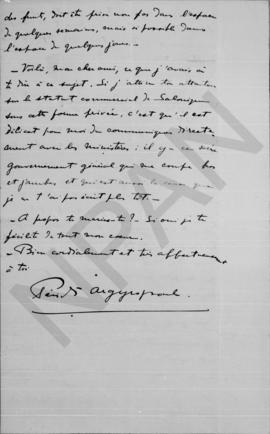 des fut, doit être prise non pas dans l'espace
de quelques semaines, mais si possible dans
l'espace de quelques jours.
— Voilà, mon cher ami, ce que j'avais à
te dire à ce sujet. Si j'attire ton attention
sur le statut commercial de Salonique
sous cette forme privée, c'est qu'il est
délicat pour moi de communiquer directe-
ment avec les ministères; il y a ce
Gouvernement général qui me coupe bras
et jambes et qui est aussi la cause que
je ne t'ai pas écrit plus tôt.
— A propos te maries-tu? Si oui je te
félicite de tout mon coeur.
— Bien cordialement et très affectueusement
à toi
Argyropoulo